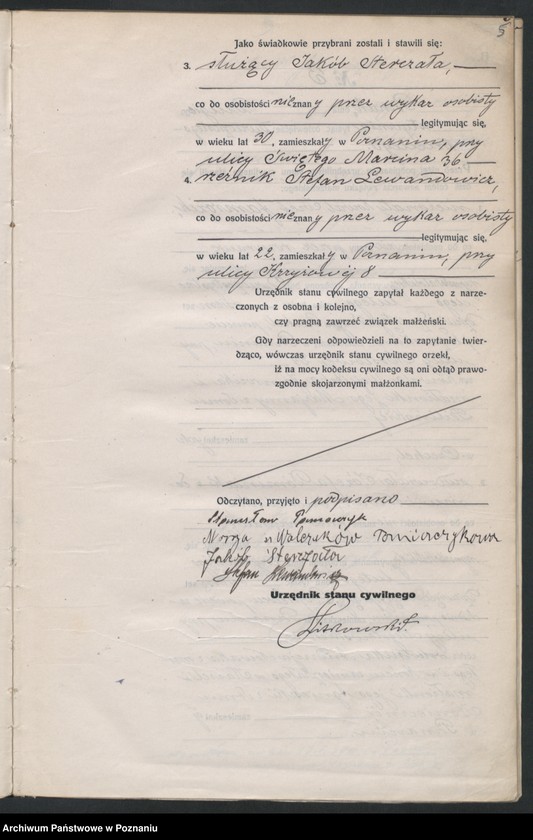 5
Jako świadkowie przybrani zostali i stawili się:
3. służący Jakób Sterczała,
co do osobistości nieznany przez wykaz osobisty
legitymując się,
w wieku lat 30, zamieszkały w Poznaniu, przy
ulicy Świętego Marcina 36
4. rzeźnik Stefan Lewandowicz,
co do osobistości nieznany przez wykaz osobisty
legitymując się,
w wieku lat 22, zamieszkały w Poznaniu, przy
ulicy Krzyżowej 8
Urzędnik stanu cywilnego zapytał każdego z narze-
czonych z osobna i kolejno,
czy pragną zawrzeć związek małżeński.
Gdy narzeczeni odpowiedzieli na to zapytanie twier-
dząco, wówczas urzędnik stanu cywilnego orzekł,
iż na mocy kodeksu cywilnego są oni odtąd prawo-
zgodnie skojarzonymi małżonkami.
Odczytano, przyjęto i podpisano
Stanisław
z Walczaków
Jakób
Stefan
Urzędnik stanu cywilnego
Archiwum Państwowe w Poznaniu